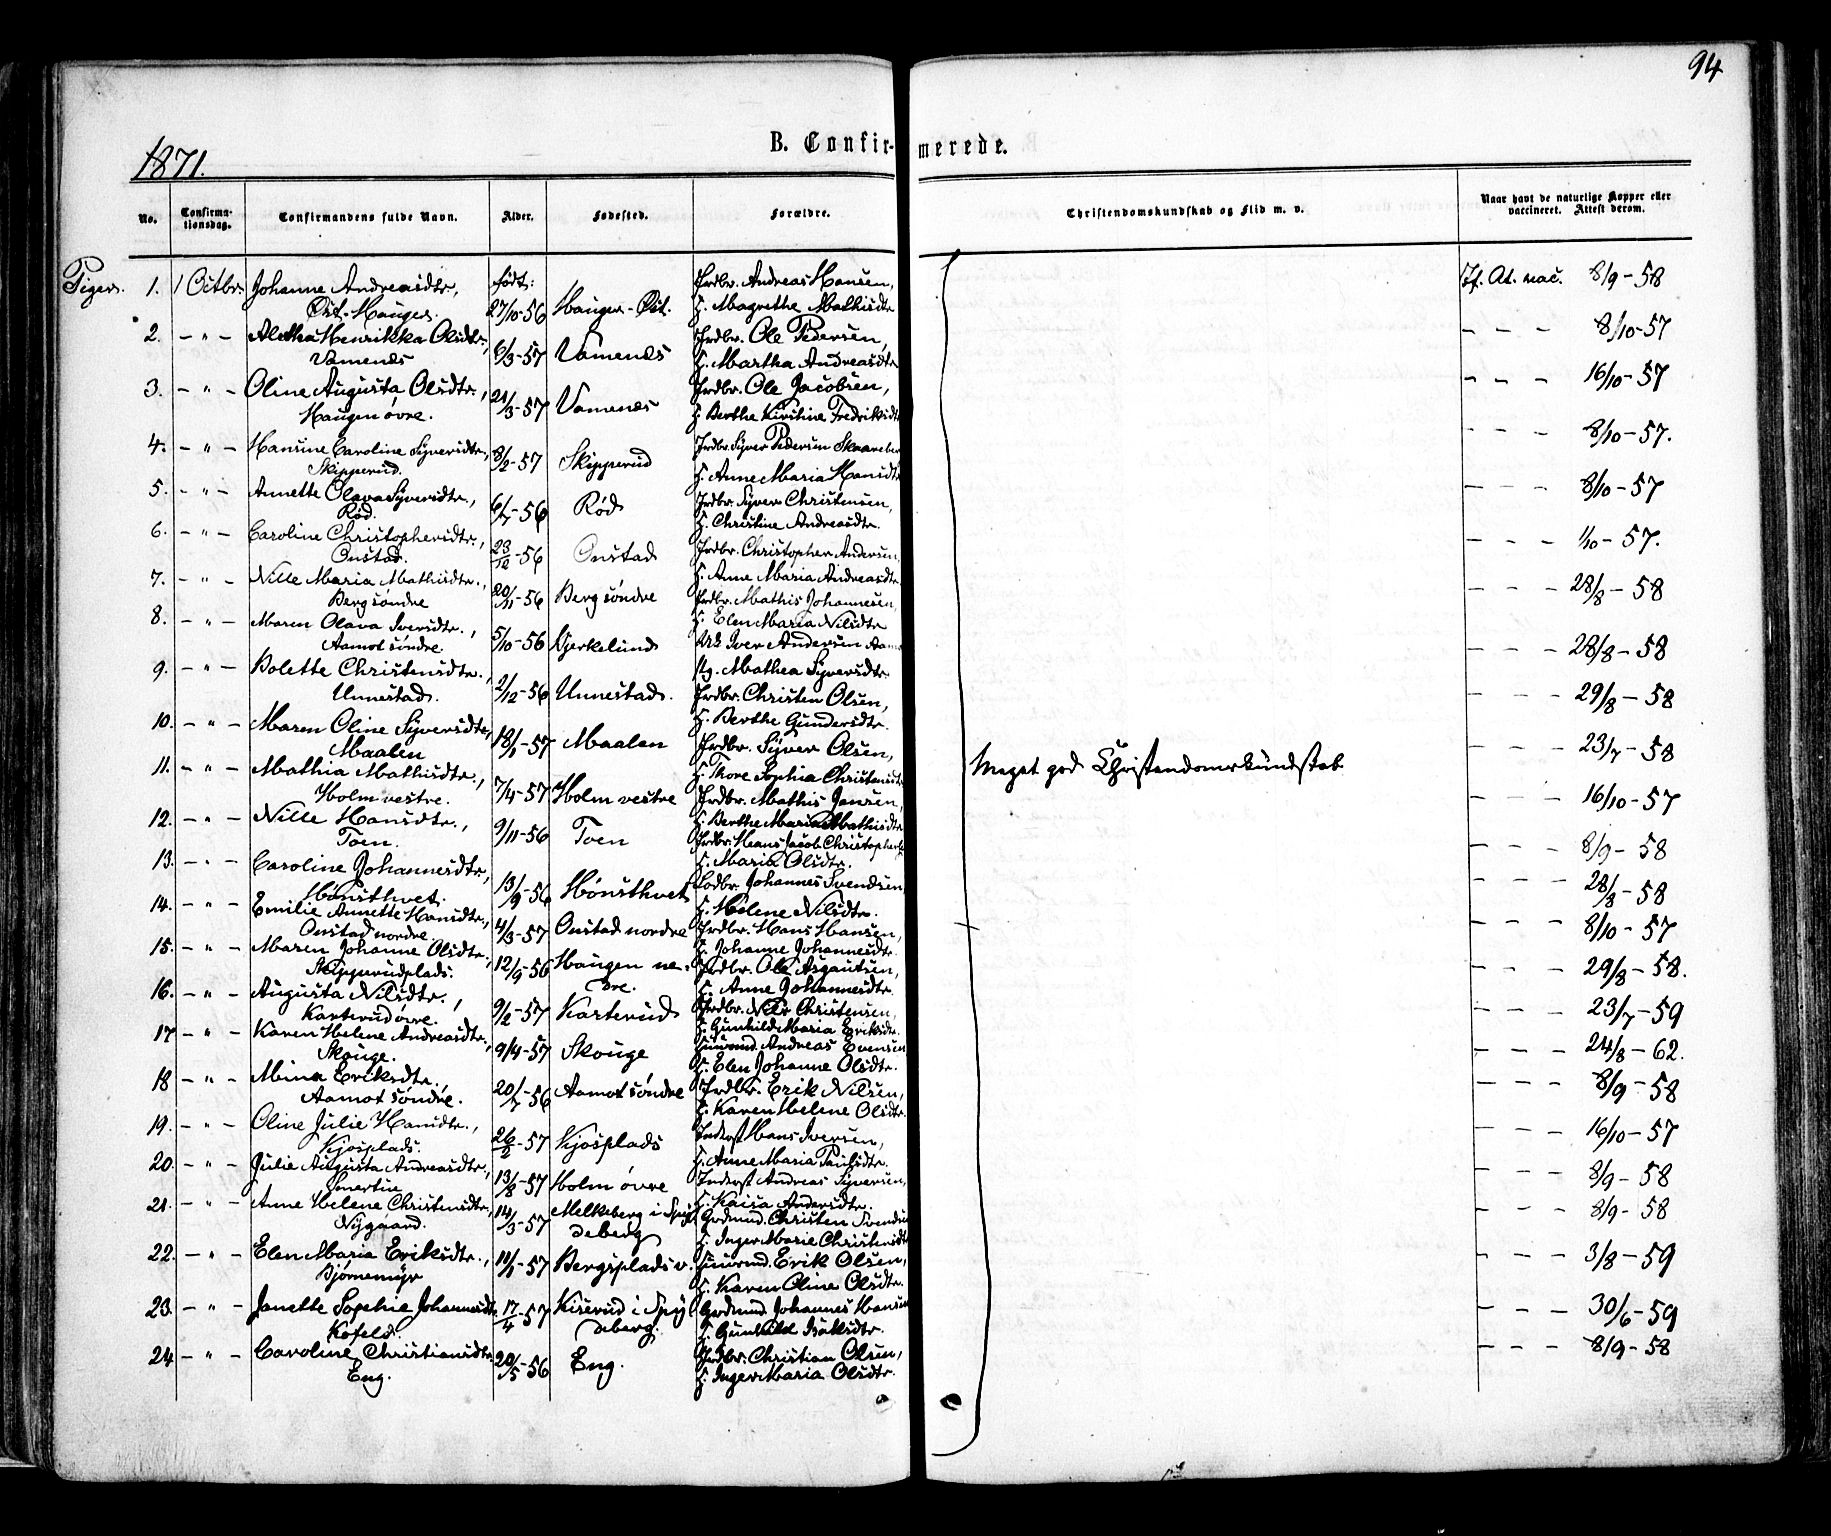 94
1871.
B. Confirmerede.
No. Confirma-tionsdag. Confirmandens fulde Navn. Alder. Fødested. Forældre. Christendomskundskab og Flid m. v. Naar havt de naturlige Kopper eller vaccineret. Attest derom.
Piger. 1. 1 Octbr. Johanne Andreasdtr., født: Grdbr. Andreas Hansen, If. At. vac. 8/9-58
Øst-Hauger. 27/10-56 Hauger-Øst. H. Magrethe Mathisdtr
2. - " - Alethea Henrikka Olsdtr., Grdbr. Ole Pedersen, - - - 8/10-57
Vamenæs 6/3-57 Vamenæs H. Martha Andreasdtr
3. - " - Oline Augusta Olsdtr., Grdbr. Ole Jacobsen, - - - 16/10-57
Haugen øvre. 21/3-57 Vamenæs H. Berthe Kirstine Fredriksdtr
4. - " - Hansine Caroline Syversdtr., Grdbr. Syver Pedersen - - - 8/10-57.
Skipperud. 8/2-57 Skipperud H. Anne Maria Hansdtr
5. - " - Annette Olava Syversdtr., Grdbr. Syver Christensen, - - - 8/10-57
Rød. 6/7-56 Rød H. Christine Andreasdtr.
6. - " - Caroline Christophersdtr., Grdbr. Christopher Andersen, - - - 1/10-57.
Onstad. 23/12-56 Onstad H. Anne Maria Andreasdtr
7. - " - Nille Maria Mathisdtr., Grdbr. Mathis Johannesen, - - - 28/8-58
Berg søndre 20/11-56 Berg søndre H. Elen Maria Nilsdtr
8. - " - Maren Olava Iversdtr., Iver Andersen - - - 28/8-58
Aamot søndre 5/10-56 Bjerkelund Mathea Syversdtr.
9. - " - Bolette Christensdtr., Grdbr. Christen Olsen, - - - 29/8-58
Unnestad. 2/12-56 Unnestad. H. Berthe Gundersdtr.
10. - " - Maren Oline Syversdtr., Grdbr. Syver Olsen, - - - 23/7-58
Maalen 18/1-57 Maalen H. Thore Sophia Christensdtr
Meget god Christendomskundskab
11. - " - Mathia Mathisdtr., Grdbr. Mathis Jansen, - - - 16/10-57
Holm vestre. 7/4-57 Holm vestre H. Berthe Maria Mathisdtr
12. - " - Nille Hansdtr., Grdbr. Hans Jacob Christophers - - - 8/9-58
Toen. 9/11-56 Toen H. Maria Olsdtr.
13. - " - Caroline Johannesdtr., Lodbr. Johannes Svendsen - - - 28/8-58
Hønsthvet. 13/9-56 Hønsthvet H. Helene Nilsdtr.
14. - " - Emilie Annette Hansdtr., Grdbr. Hans Hansen, - - - 8/10-57
Onstad nordre. 4/3-57 Onstad nordre H. Johanne Johannesdtr.
15. - " - Maren Johanne Olsdtr., Grdbr. Ole Asgautsen, - - - 29/8-58.
Skipperudplads. 12/9-56 Haugen nedre. H. Anne Johannesdtr.
16. - " - Augusta Nilsdtr., Grdbr. Nils Christensen, - - - 23/7-59
Karterud øvre. 9/2-57 Karterud H. Gunhild Maria Eriksdtr.
17 - " - Karen Helene Andreasdtr., Huusmd. Andreas Evensen - - - 24/8-62.
Skouge. 9/4-57 Skouge H. Elen Johanne Olsdtr.
18 - " - Mina Eriksdtr., Grdbr. Erik Nilsen, - - - 8/9-58
Aamot søndre. 20/7-56 Aamot søndre H. Karen Helene Olsdtr.
19. - " - Oline Julie Hansdtr., Inderst Hans Iversen, - - - 16/10-57
Kjosplads. 26/2-57 Kjosplads H. Anne Maria Paulsdtr.
20. - " - Julie Augusta Andreasdtr., Inderst Andreas Syversen, - - - 8/9-58
Smertun 13/8-57 Holm øvre H. Kaisa Andersdtr.
21. - " - Anne Helene Christensdtr., Grdmnd. Christen Svends - - - 8/9-58
Nygaard. 14/3-57 Melkeberg i Spydeberg H. Inger Marie Christensdtr
22. - " - Elen Maria Eriksdtr., Huusmd. Erik Olsen, - - - 3/8-59
Bjørnemyr 11/1-57 Bergsplads v. H. Karen Oline Olsdtr.
23. - " - Janette Sophie Johannesdtr. Grdmnd. Johannes Hansen - - - 30/6-59
Kofeld. 17/4-57 Kiserud i Spydeberg. H. Gunhild Isaksdtr.
24 - " - Caroline Christiansdtr. Grdbr. Christian Olsen, - - - 8/9-58
Eng. 20/5-56 Eng. H. Inger Maria Olsdtr.